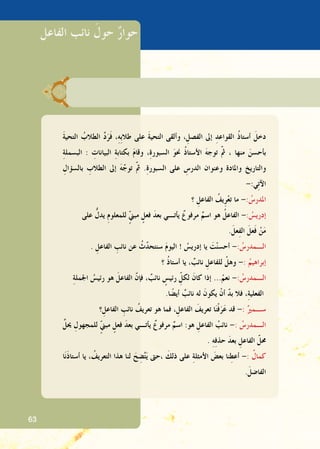 حوارٌ حولَ نائب الفاعل
دخلَ أستاذُ القواعدِ إلى الفصلِ، وألقى التحيةَ على طلابِهِ، فَرَدَّ الطلابُ التحيةَ
بأحسنَ منها ، ثُمَّ توجهَ الأستاذُ نحوَ السبورةِ، وقامَ بكتابةِ البياناتِ : البسملةِ
والتاريخِ والمادةِ وعنوانِ الدرسِ على السبورةِ. ثُمَّ توجَّهَ إلى الطلابِ بالسؤالِ
الآتي:-
المدرسُ:- ما تعْريفُ الفاعلِ ؟
إدريسُ:- الفاعلُ هو اسمٌ مرفوعٌ يأتـــي بعدَ فعلٍ مبنيٍّ للمعلومِ يدلُّ على
مَنْ فَعَلَ الفِعلَ.
المـدرسُ:- أحسنْتَ يا إدريسُ ! اليومَ سنتحدَّثُ عن نائبِ الفاعلِ .
إبراهيمُ :- وهلْ للفاعلِ نائبٌ، يا أستاذُ ؟
المـدرسُ:- نعمْ... إذا كانَ لكلِّ رئيسٍ نائبٌ، فإنَّ الفاعلَ هو رئيسُ الجملةِ
الفعليةِ، فلا بدَّ أنْ يكونَ له نائبٌ أيضًا.
سـميرٌ :- قد عَرَفْنا تعريفَ الفاعلِ، فما هو تعريفُ نائبِ الفاعلِ؟
المـدرسُ :- نائبُ الفاعلِ هو: اسمٌ مرفوعٌ يأتـــي بعدَ فعلٍ مبنيٍّ للمجهولِ يحلُّ
محلَّ الفاعلِ بعدَ حذفِهِ .
كمالٌ :- أعطِنا بعضَ الأمثلةِ على ذلك ،حتى يَتَّضِحَ لنا هذا التعريفُ، يا أستاذَنَا
الفاضلَ.
63